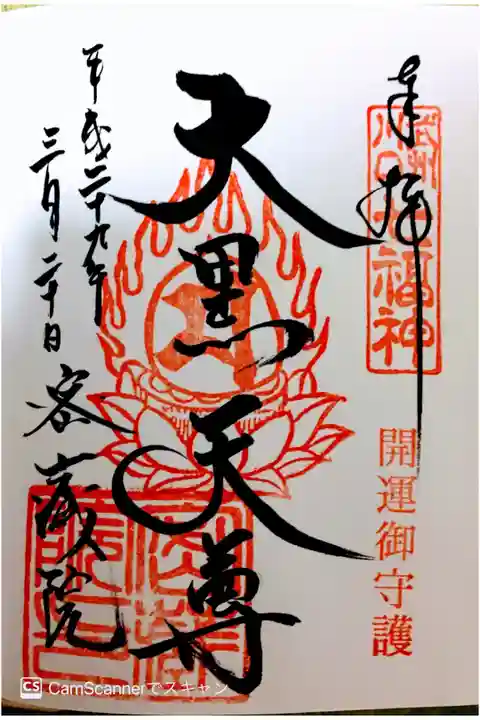 奉拝
武州川口七福神
開運御守護
大黒天尊
平成二十九年
三月二十日
密蔵院
CS CamScannerでスキャン